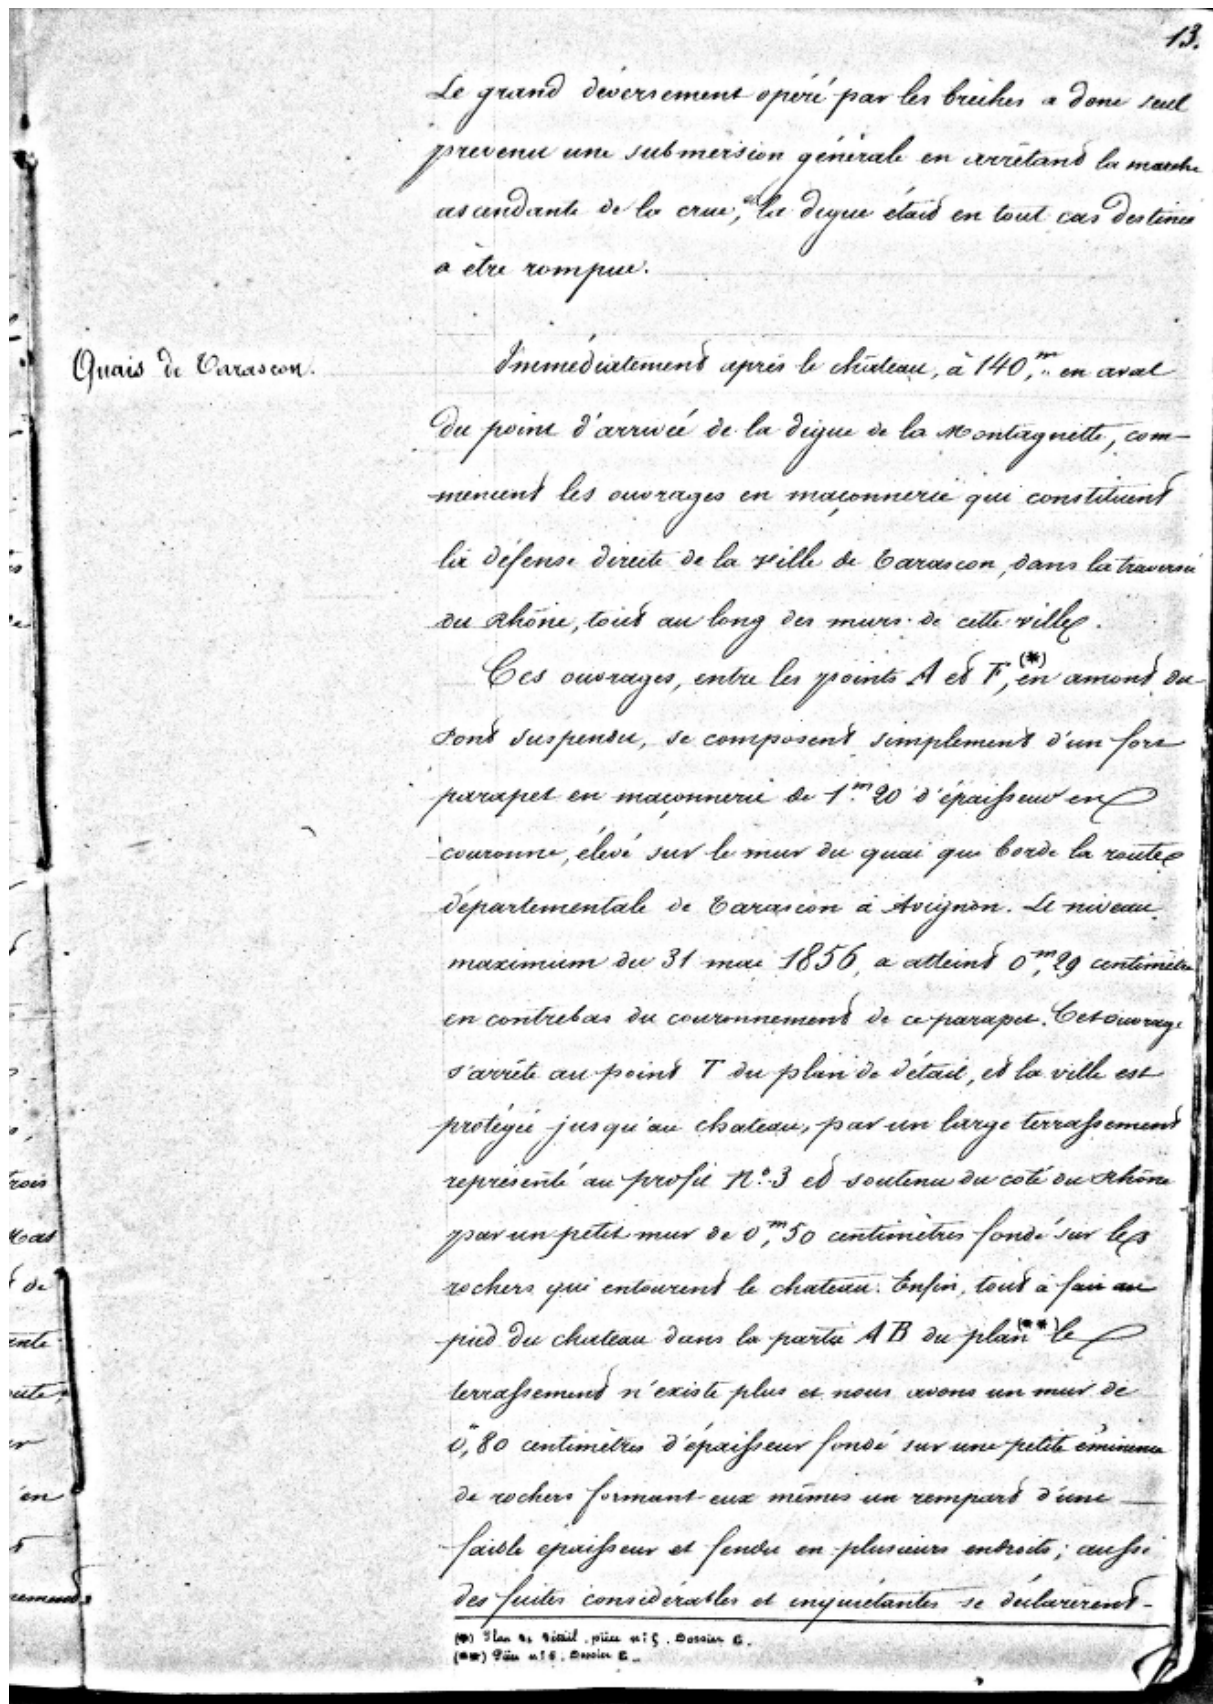 13.
Le grand déversement opéré par les brèches a donc seul
prevenu une submersion générale en arrêtant la marche
ascendante de la crue, et la digue était en tout cas destinée
a être rompue.
Quais de Tarascon.
Immédiatement après le château, à 140,m" en aval
du point d'arrivée de la digue de la Montagnette, com-
mencent les ouvrages en maçonnerie qui constituent
la défense directe de la ville de Tarascon, dans la traversée
du Rhône, tout au long des murs de cette ville.
Ces ouvrages, entre les points A et F, (*) en amont du
Pont suspendu, se composent simplement d'un fort
parapet en maçonnerie de 1m.20 d'épaisseur en
couronne, élevé sur le mur du quai qui borde la route
départementale de Tarascon à Avignon. Le niveau
maximum du 31 mai 1856, a atteint 0m,29 centimètres
en contrebas du couronnement de ce parapet. Cet ouvrage
s'arrête au point T du plan de détail, et la ville est
protégée jusqu'au chateau, par un large terrassement
représenté au profil No.3 et soutenu du coté du Rhône
par un petit mur de 0m,50 centimètres fondé sur les
rochers qui entourent le chateau. Enfin, tout à fait au
pied du chateau dans la partie AB du plan (**) le
terrassement n'existe plus et nous avons un mur de
0m,80 centimètres d'épaisseur fondé sur une petite éminence
de rochers formant eux mêmes un rempart d'une
faible épaisseur et fendu en plusieurs endroits; aussi
des fuites considérables et inquiétantes se déclarèrent-
(*) Plan de Détail. pièce no 5. Dossier
(**) Pièce no 6. Dossier